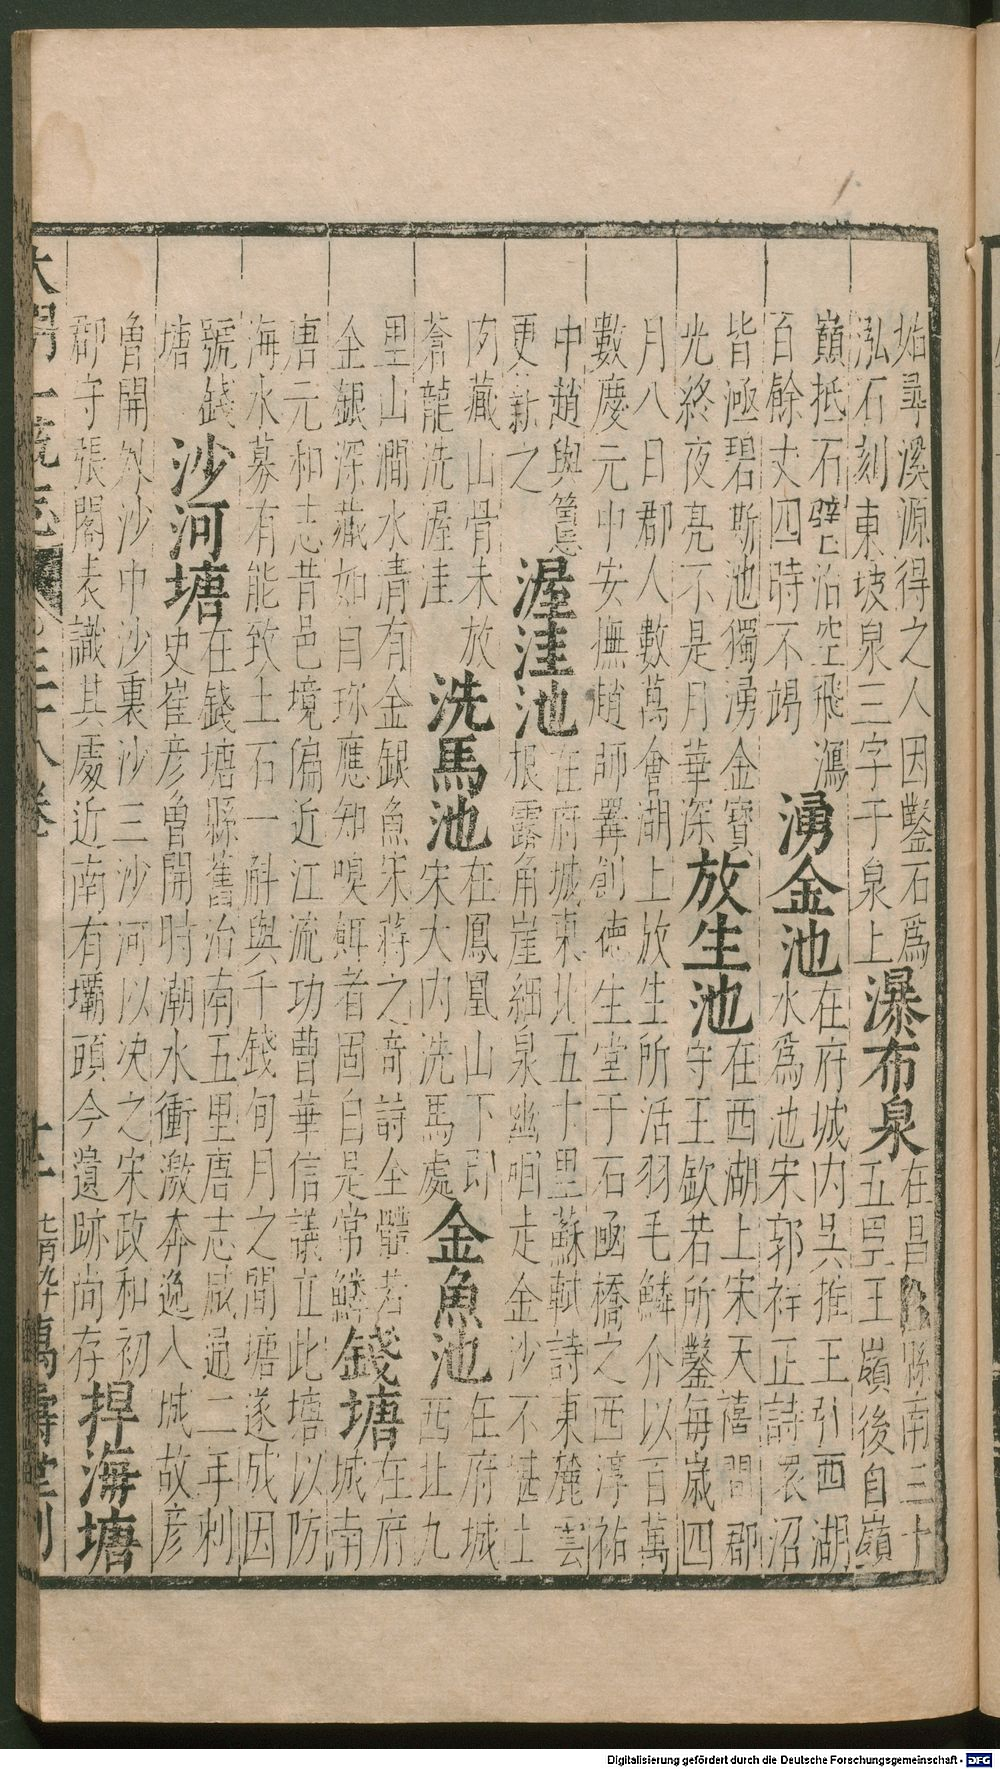 始尋溪源得之人因鑿石爲
泓石刻東坡泉三字于泉上
瀑布泉
在昌化縣南三十
五里王嶺後自嶺
巔抵石壁凸沿空飛瀉
百餘丈四時不竭
湧金池
在府城內吳推王引西湖
水爲池宋郭祥正詩衆沼
皆涵碧斯池獨湧金寶
光終夜亮不是月華深
放生池
在西湖上宋天禧間郡
守王欽若所鑿每歲四
月八日郡人數萬會湖上放生所活羽毛鱗介以百萬
數慶元中安撫趙師𢍰創德生堂于石函橋之西淳祐
中趙與𥲅忌
更新之
渥洼池
在府城東北五十里蘇軾詩東麓雲
根露角崖細泉幽咽走金沙不堪土
肉藏山骨未放
蒼龍洗渥洼
洗馬池
在鳳凰山下即
宋大內洗馬處
金魚池
在府城
西北九
里山澗水清有金銀魚宋蔣之奇詩全體若
金銀深藏如自珎應知嗅餌者固自是常鱗
錢塘
在府
城南
唐元和志昔邑境偏近江流功曹華信議立此塘以防
海水募有能致土石一斛與千錢旬月之間塘遂成因
號錢
塘
沙河塘
在錢塘縣舊治南五里唐志咸通二年刺
史崔彦魯開時潮水衝激奔逸入城故彦
魯開外沙中沙裏沙三沙河以决之宋政和初
郡守張閣表識其處近南有壩頭今遺跡尚存
捍海塘
大明一統志 卷之三十八卷 十二 七百九十 萬壽堂刊
Digitalisierung gefördert durch die Deutsche Forschungsgemeinschaft - DFG